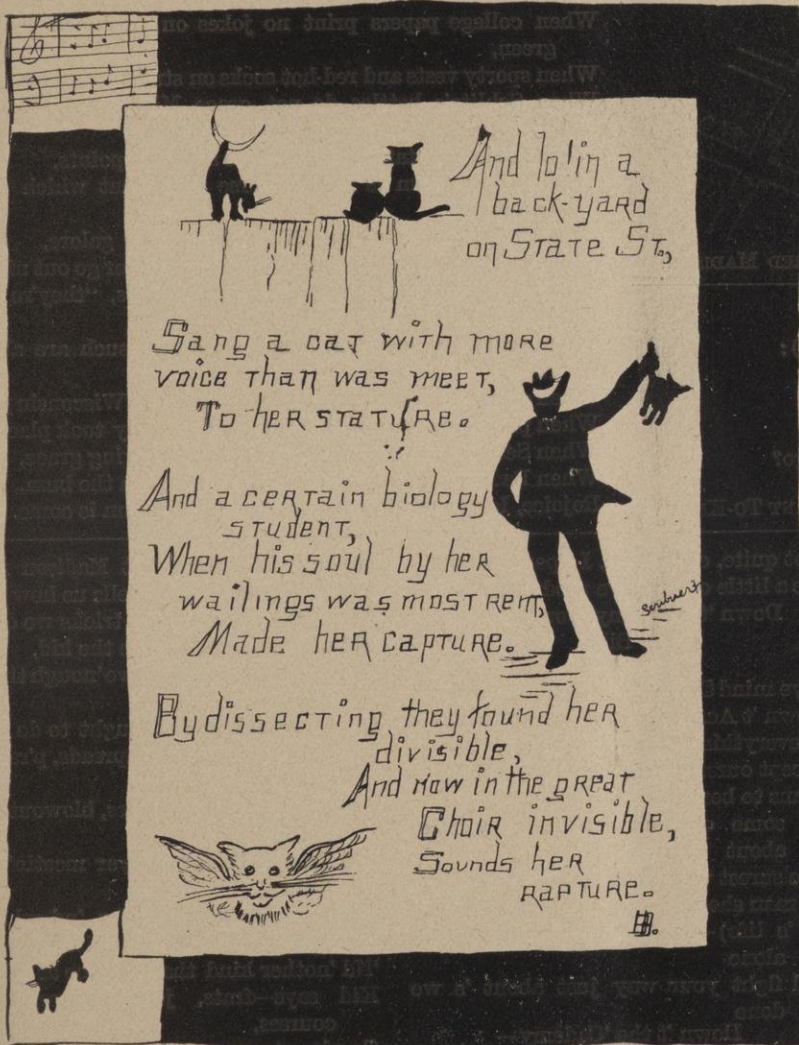 And lo! in a
back-yard
on State St.,
Sang a cat with more
voice than was meet,
To her stature.
And a certain biology
student,
When his soul by her
wailings was most rent,
Made her capture.
By dissecting they found her
divisible,
And now in the great
Choir invisible,
Sounds her
rapture.